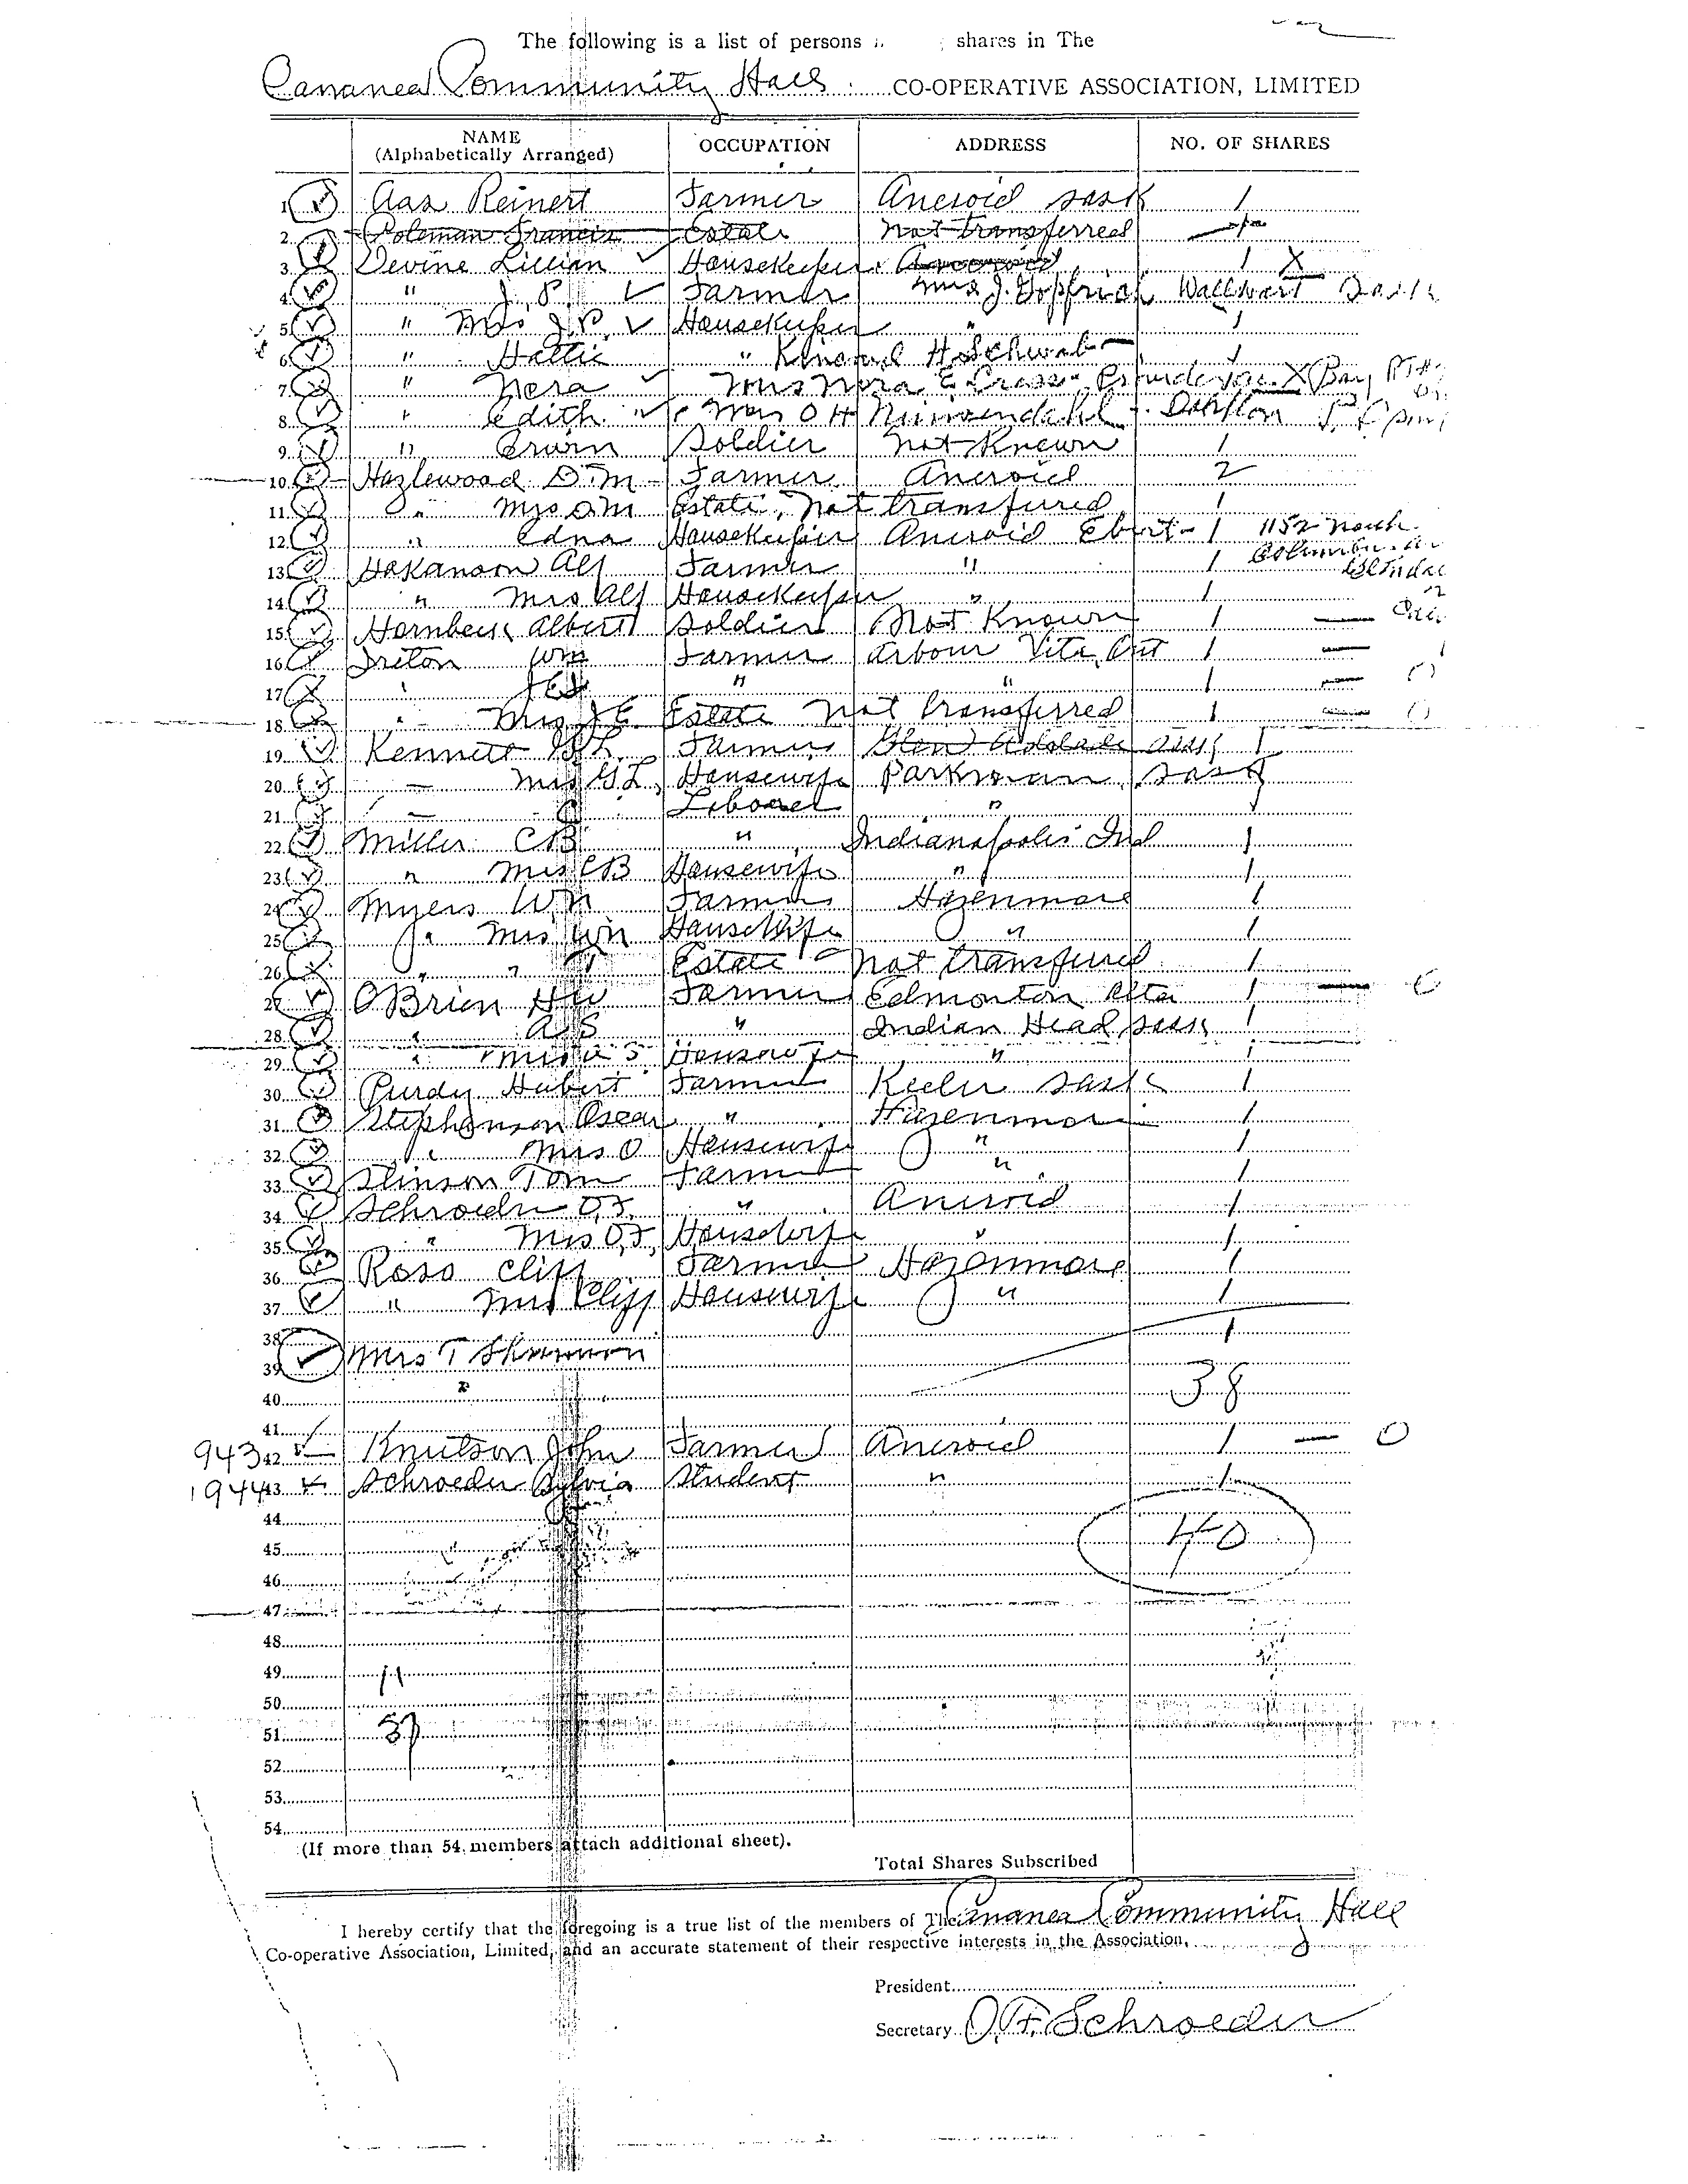 The following is a list of persons shares in The
Cananea Community Hall CO-OPERATIVE ASSOCIATION, LIMITED
NAME (Alphabetically Arranged) OCCUPATION ADDRESS NO. OF SHARES
1 Aas Reinert Farmer Aneroid Sask 1
2 Coleman Francis Estate Not transferred 1
3 Devine Lillian Housekeeper Aneroid 1 X
4 " J. P. Farmer Mrs J. Wallwort
5 " Mrs J. P. Housekeeper " 1
6 " Hattie " H Schwab 1
7 " Nora Mrs Nora E X Bay
8 " Edith Mrs O H
9 " Erwin Soldier Not Known 1
10 Hazlewood D. M Farmer Aneroid 2
11 " Mrs D M Estate, Not transfured 1
12 " Edna Housekeeper Aneroid Ebert 1 1152 North
13 Hakanson Alf Farmer " 1 Columbus
14 " Mrs Alf Housekeeper " 1
15 Hornbeck Albert Soldier Not Known 1 —
16 Ireton Wm Farmer Arbour Vita, Ont 1 —
17 " " " 1 —
18 " Mrs J E Estate Not transferred 1 —
19 Kennett Farmer Sask 1
20 — Mrs G L. Housewife Parkman Sask
21 — "
22 Miller C B " Indianapolis Ind 1
23 " Mrs C B Housewife " 1
24 Myers Wm Farmer Hazenmore 1
25 " Mrs Wm Housewife " 1
26 " " Estate Not transfured 1
27 O'Brien H W Farmer Edmonton Alta 1 —
28 " A S " Indian Head Sask 1
29 " Mrs A S Housewife " 1
30 Purdy Hubert Farmer Keeler Sask 1
31 Stephenson Oscar " Hazenmore 1
32 " Mrs O Housewife " 1
33 Stinson Tom Farmer " 1
34 Schroeder O. F. " Aneroid 1
35 " Mrs O. F. Housewife " 1
36 Ross Cliff Farmer Hazenmore 1
37 " Mrs Cliff Housewife " 1
38 1
39 Mrs T Shannon
40 " 38
41
943 42 Knutson John Farmer Aneroid 1 — 0
1944 43 Schroeder Sylvia Student " 1
44
45 40
46
47
48
49
50
51 37
52
53
54
(If more than 54 members attach additional sheet).
Total Shares Subscribed
I hereby certify that the foregoing is a true list of the members of The Cananea Community Hall
Co-operative Association, Limited, and an accurate statement of their respective interests in the Association.
President
Secretary O. F. Schroeder